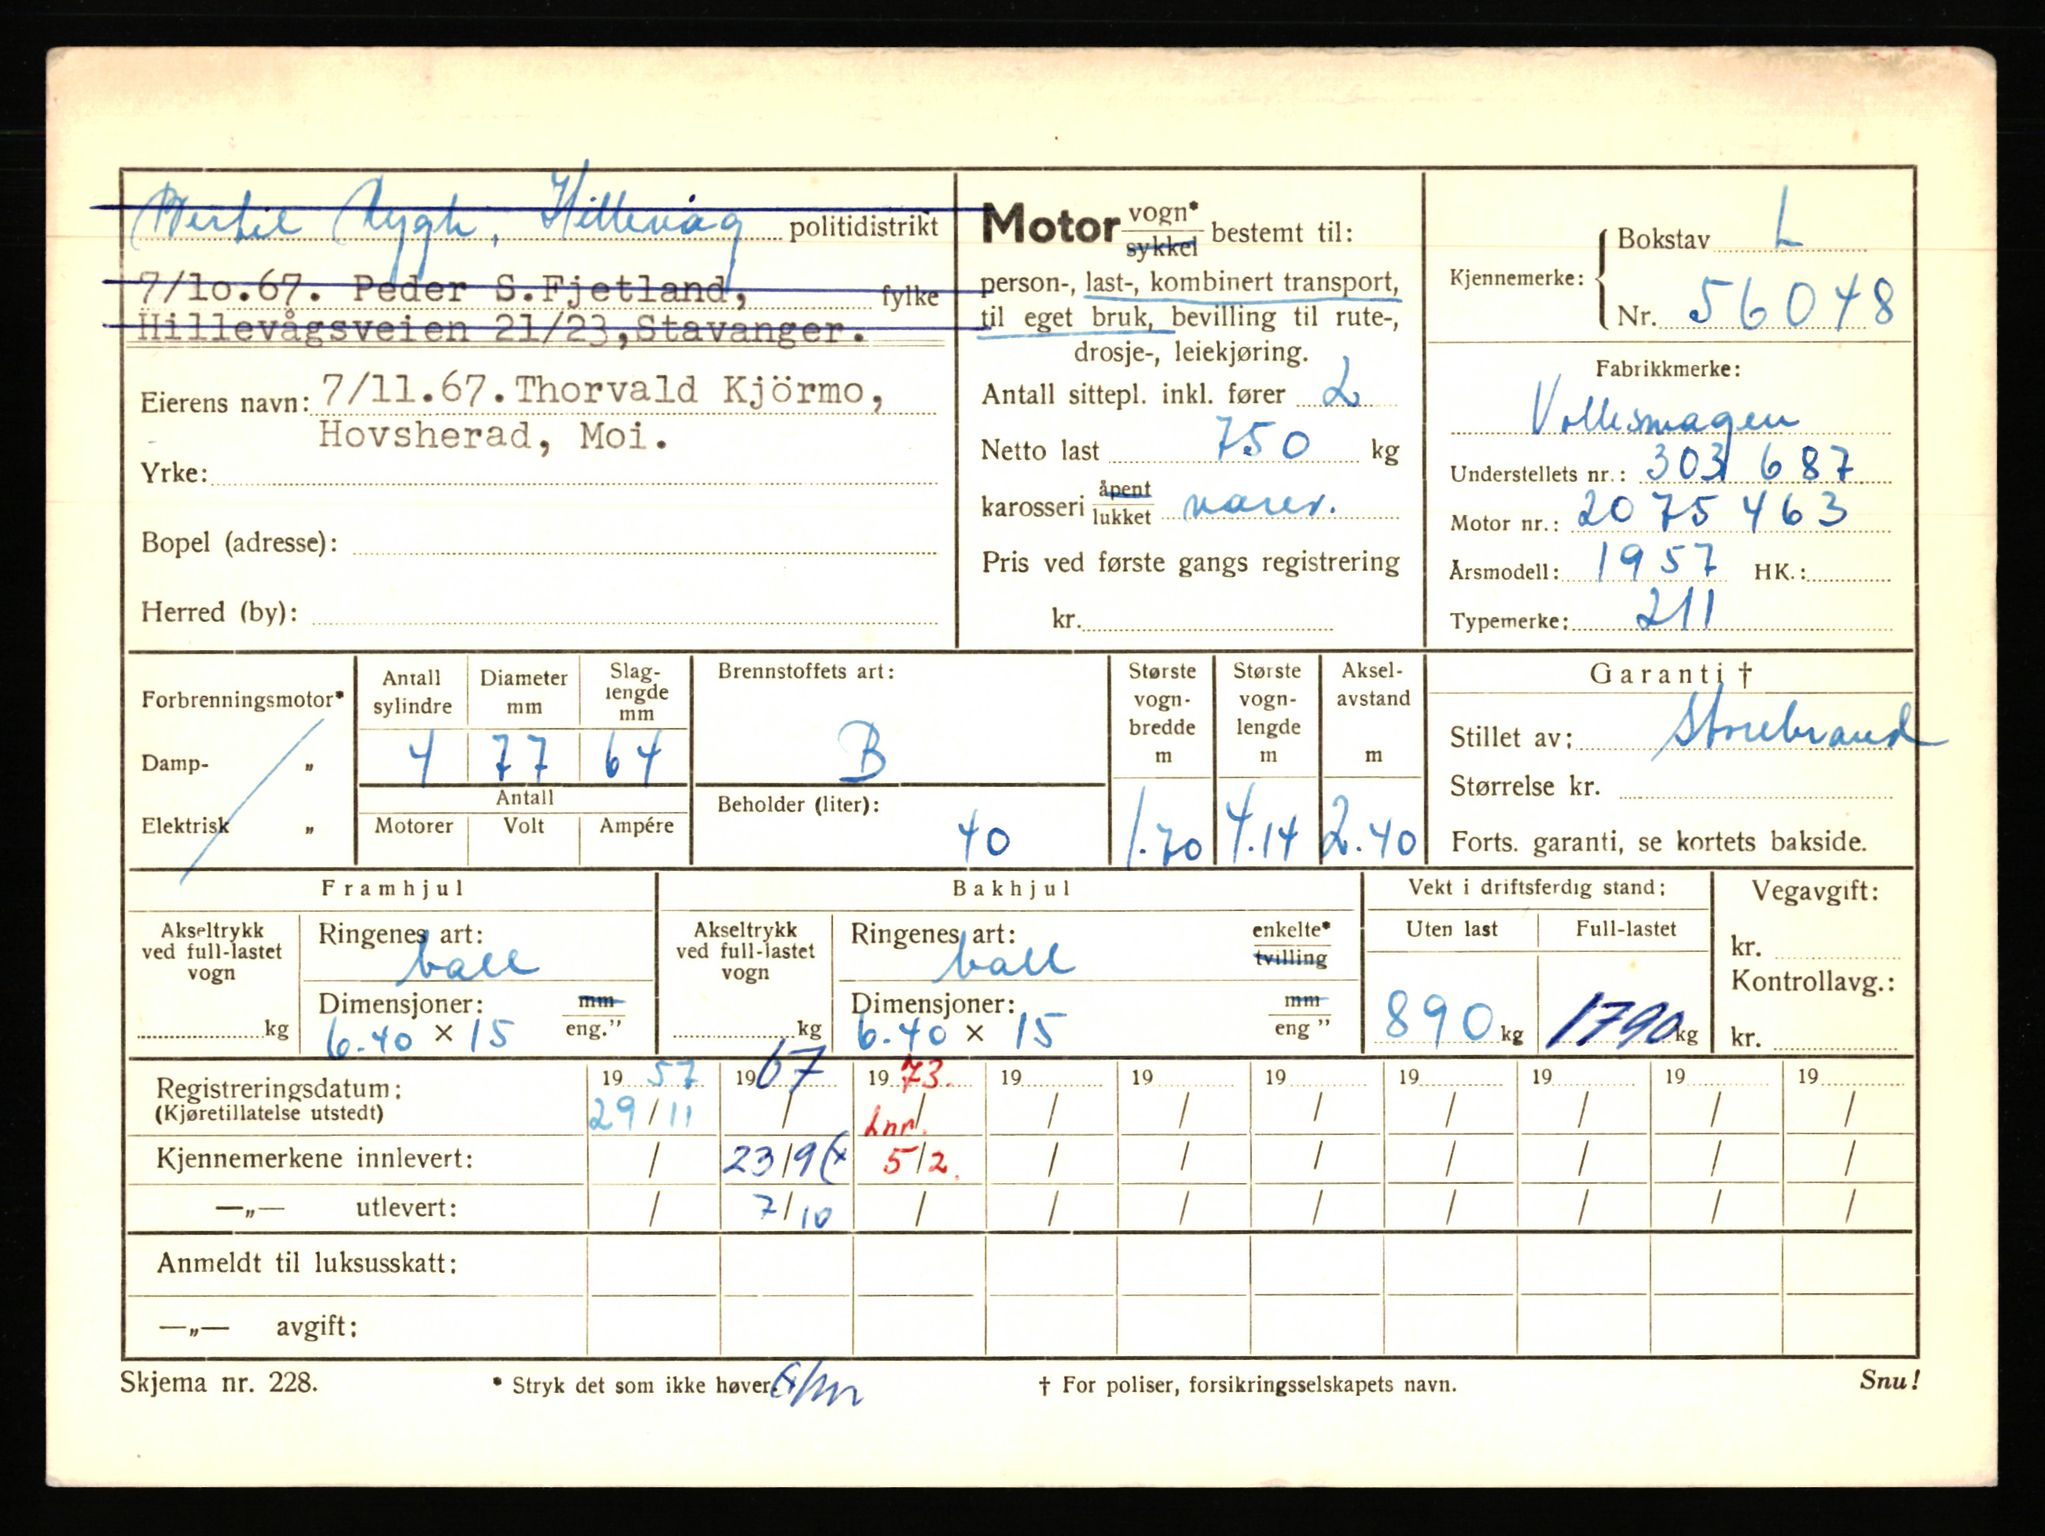 Bertil Rygh, Hillevåg politidistrikt
7/10.67. Peder S.Fjetland, fylke
Hillevågsveien 21/23,Stavanger.
Eierens navn: 7/11.67.Thorvald Kjörmo,
Hovsherad, Moi.
Yrke:
Bopel (adresse):
Herred (by):
Motor vogn* sykkel bestemt til:
person-, last-, kombinert transport,
til eget bruk, bevilling til rute-,
drosje-, leiekjøring.
Antall sittepl. inkl. fører 2
Netto last 750 kg
karosseri åpent lukket varev.
Pris ved første gangs registrering
kr.
Kjennemerke: Bokstav L
Nr. 56048
Fabrikkmerke:
Volkswagen
Understellets nr.: 303 687
Motor nr.: 2075463
Årsmodell: 1957 HK.:
Typemerke: 211
Forbrenningsmotor*
Damp- „
Elektrisk „
Antall sylindre
4
Diameter mm
77
Slag-
lengde
mm
64
Antall
Motorer Volt Ampére
Brennstoffets art:
B
Beholder (liter):
40
Største
vogn-
bredde
m
1.70
Største
vogn-
lengde
m
4.14
Aksel-
avstand
m
2.40
Garanti †
Stillet av: Storebrand
Størrelse kr.
Forts. garanti, se kortets bakside.
Framhjul
Akseltrykk
ved full-lastet
vogn
kg
Ringenes art:
ball
Dimensjoner: mm
6.40 × 15 eng.”
Bakhjul
Akseltrykk
ved full-lastet
vogn
kg
Ringenes art: enkelte*
ball tvilling
Dimensjoner: mm
6.40 × 15 eng ”
Vekt i driftsferdig stand:
Uten last Full-lastet
890 kg 1790 kg
Vegavgift:
kr.
Kontrollavg.:
kr.
Registreringsdatum: 19 57 19 67 19 73. 19 19 19 19 19 19 19
(Kjøretillatelse utstedt) 29/11 / Lnr. / / / / / / / /
Kjennemerkene innlevert: / 23/9 (x 5/2. / / / / / / /
—„— utlevert: / 7/10 / / / / / / / /
Anmeldt til luksusskatt:
—„— avgift:
Skjema nr. 228. * Stryk det som ikke høver. † For poliser, forsikringsselskapets navn. Snu!